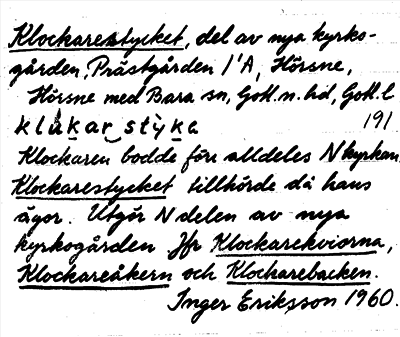 Klockarestycket, del av nya kyrko-
gården, Prästgården 1'A, Hörsne,
Hörsne med Bara sn, Gotl.n.häd, Gotl.l
klu̇kar‿stẏka 191
Klockaren bodde förr alldeles N kyrkan,
Klockarestycket tillhörde då hans
ägor. Utgör N delen av nya
kyrkogården Jfr Klockarekviorna,
Klockareåkern och Klockarebacken.
Inger Eriksson 1960.